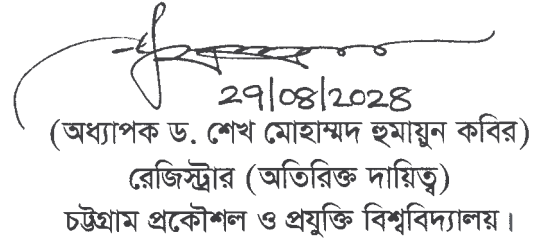 29/08/2028
(অধ্যাপক ড. শেখ মোহাম্মদ হুমায়ুন কবির)
রেজিস্ট্রার (অতিরিক্ত দায়িত্ব)
চট্টগ্রাম প্রকৌশল ও প্রযুক্তি বিশ্ববিদ্যালয়।